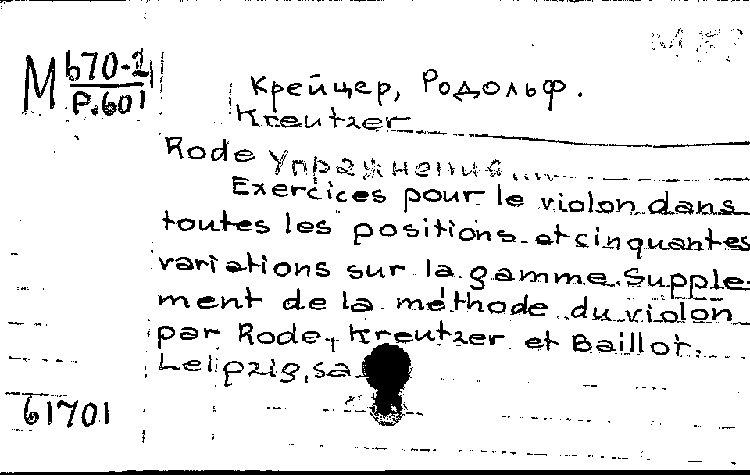 M 670-2
P.601
Крейцер, Родольф.
Kreutzer
Rode Упражнения....
Exercices pour le violon dans
toutes les positions et cinquantes
variations sur la gamme. Supple-
ment de la méthode du violon
par Rode, Kreutzer et Baillot.
Leipzig, sa
61701